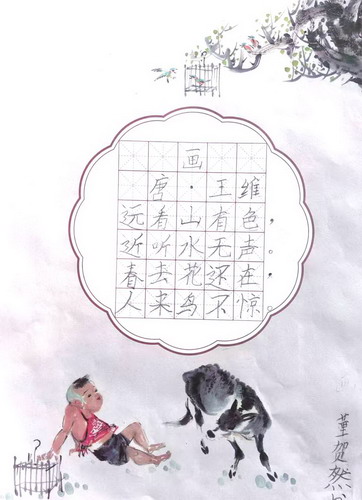 画
唐·王维
远看山有色，
近听水无声。
春去花还在，
人来鸟不惊。
董贺然